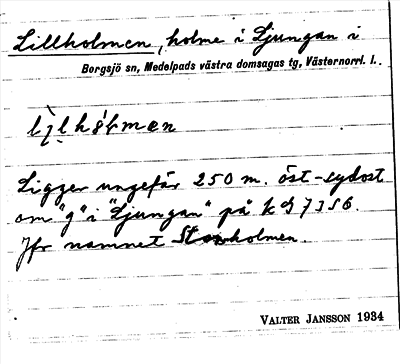 Lillholmen, holme i Ljungan i
Borgsjö sn, Medelpads västra domsagas tg, Västernorrl. l..
Ligger ungefär 250 m. öst-sydost
om "g" i "Ljungan" på k
Jfr namnet Storholmen.
VALTER JANSSON 1934